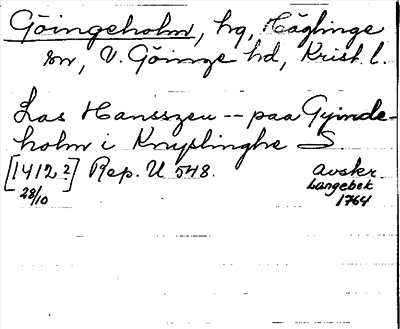 Göingeholm, hg, Häglinge
sn, V. Göinge hd, Krist. l.
Las Hanszen -- paa Gyinde-
holm i Knyslinghe S.
[1412 2] Rep. U 548. Avskr.
28/10 Langebek
1764